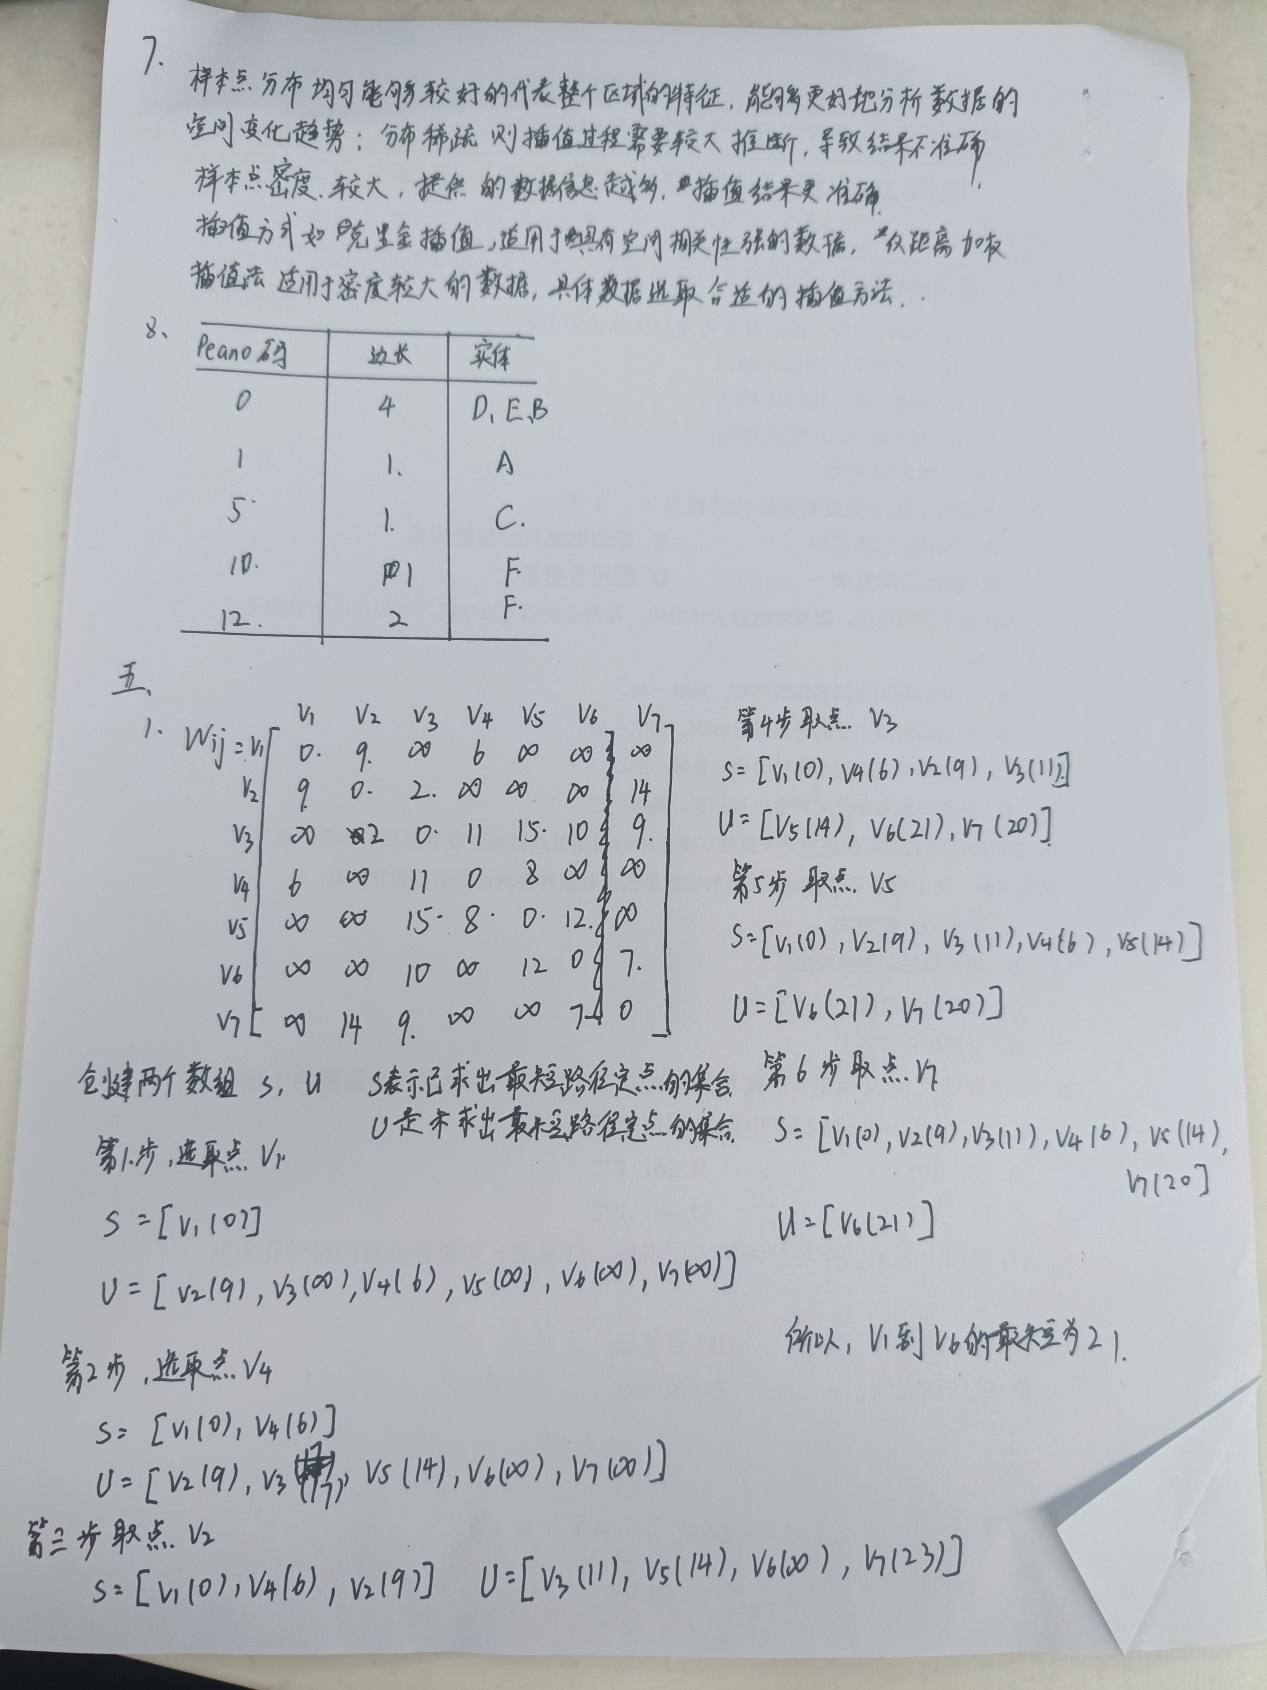 7.
样本点分布均匀能够较好的代表整个区域的特征，能够更好地分析数据的
空间变化趋势；分布稀疏则插值过程需要较大推断，导致结果不准确
样本点密度较大，提供的数据信息越多，插值结果更准确
插值方式如克里金插值，适用于具有空间相关性强的数据，反距离加权
插值法适用于密度较大的数据，具体数据选取合适的插值方法.
8、
Peano码 边长 实体
0 4 D、E、B
1 1. A
5 1. C.
10. 1 F.
12. 2 F.
五、
1. V1 V2 V3 V4 V5 V6 V7
Wij = V1 [ 0. 9. ∞ 6 ∞ ∞ ∞
V2 9 0. 2. ∞ ∞ ∞ 14
V3 ∞ 2 0. 11 15. 10 9.
V4 6 ∞ 11 0 8 ∞ ∞
V5 ∞ ∞ 15. 8. 0. 12. ∞
V6 ∞ ∞ 10 ∞ 12 0 7.
V7 [ ∞ 14 9. ∞ ∞ 7 0 ]
创建两个数组 S, U S表示已求出最短路径定点的集合.
U是未求出最短路径定点的集合.
第1步,选取点V1.
S = [V1(0)]
U = [V2(9), V3(∞), V4(6), V5(∞), V6(∞), V7(∞)]
第2步,选取点V4
S= [V1(0), V4(6)]
U= [V2(9), V3(17), V5(14), V6(∞), V7(∞)]
第三步取点. V2
S= [V1(0), V4(6), V2(9)] U= [V3(11), V5(14), V6(∞), V7(23)]
第4步取点. V3
S= [V1(0), V4(6), V2(9), V3(11)]
U= [V5(14), V6(21), V7(20)]
第5步 取点. V5
S= [V1(0), V2(9), V3(11), V4(6), V5(14)]
U= [V6(21), V7(20)]
第6步取点. V7
S= [V1(0), V2(9), V3(11), V4(6), V5(14),
V7(20)]
U= [V6(21)]
所以, V1到V6的最短为21.